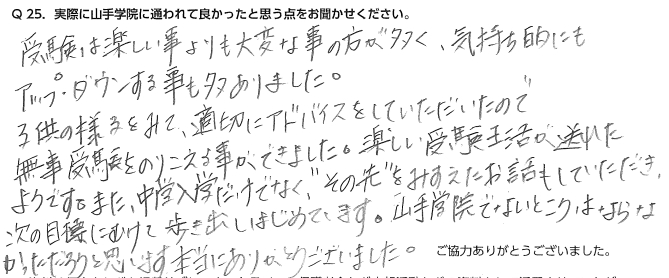 Q 25. 実際に山手学院に通われて良かったと思う点をお聞かせください。
受験は楽しい事よりも大変な事の方が多く、気持ち的にも
アップ・ダウンする事も多々ありました。
子供の様子をみて、適切にアドバイスをしていただいたので
無事受験をのりこえる事ができました。楽しい受験生活が送れた
ようです。また、中学入学だけでなく、"その先"をみすえたお話もしていただき、
次の目標にむけて歩き出しはじめています。山手学院でないとこうはならな
かっただろうと思います。本当にありがとうございました。
ご協力ありがとうございました。